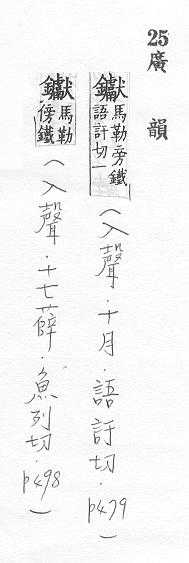 25廣韻
钀馬勒旁鐵語訐切一（入聲．十月．語訐切．p479）
钀馬勒傍鐵（入聲．十七薛．魚列切．p498）